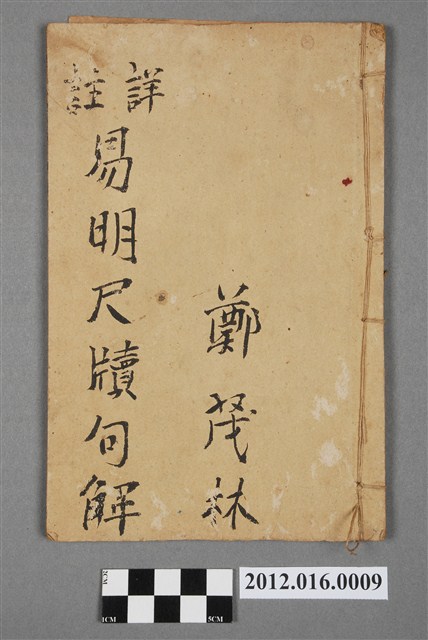 詳註
易明尺牘句解
鄭茂林
2CM
1CM
5CM
2012.016.0009